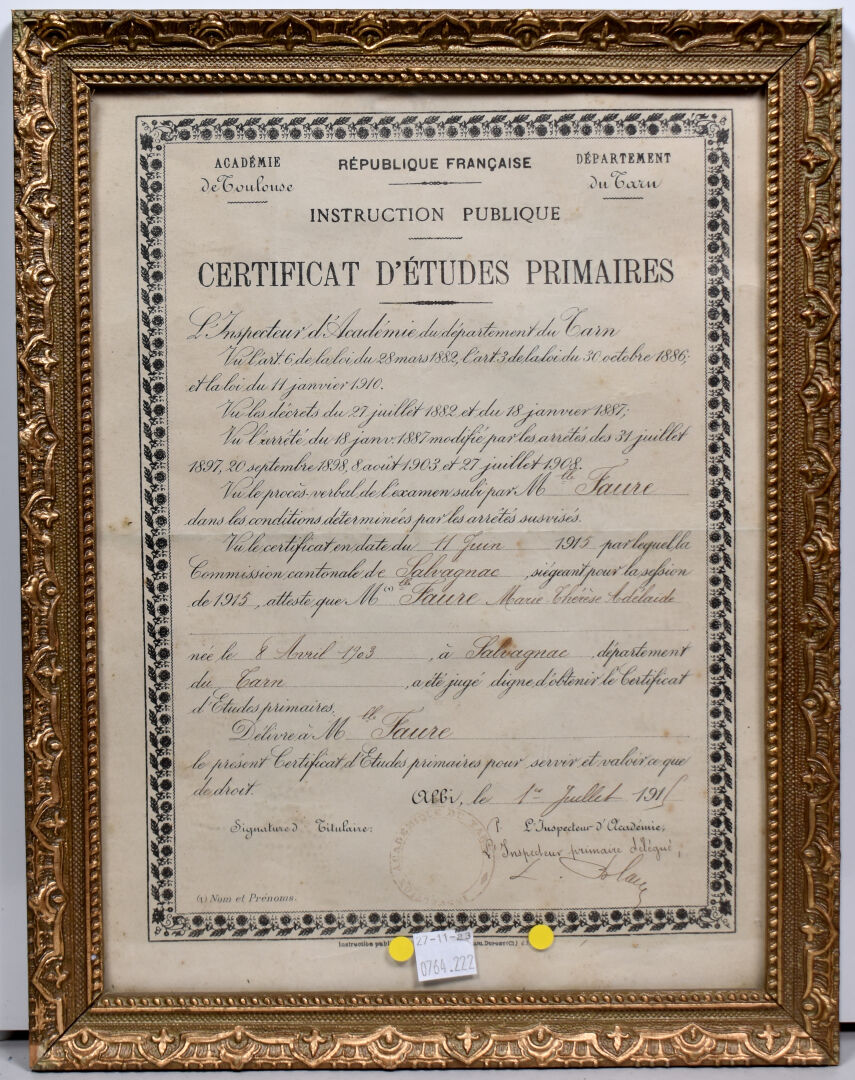 ACADÉMIE
de Toulouse
RÉPUBLIQUE FRANÇAISE
DÉPARTEMENT
du Tarn
INSTRUCTION PUBLIQUE
CERTIFICAT D'ÉTUDES PRIMAIRES
L'Inspecteur d'Académie du département du Tarn
Vu l'art. 6 de la loi du 28 mars 1882, l'art. 3 de la loi du 30 octobre 1886;
et la loi du 11 janvier 1910.
Vu les décrets du 27 juillet 1882 et du 18 janvier 1887;
Vu l'arrêté du 18 janv. 1887 modifié par les arrêtés des 31 juillet
1897, 20 septembre 1898, 8 août 1903 et 27 juillet 1908.
Vu le procès-verbal de l'examen subi par Mlle Faure
dans les conditions déterminées par les arrêtés susvisés.
Vu le certificat en date du 11 Juin 1915 par lequel la
Commission cantonale de Salvagnac, siégeant pour la session
de 1915, atteste que M(1)elle Faure Marie Thérèse Adélaïde
née le 8 Avril 1903, à Salvagnac, département
du Tarn, a été jugé digne d'obtenir le Certificat
d'Etudes primaires.
Délivré à Mlle Faure
le présent Certificat d'Etudes primaires pour servir et valoir ce que
de droit.
Albi, le 1er Juillet 1915
Signature d Titulaire:
P L'Inspecteur d'Académie,
L'Inspecteur primaire délégué,
(1) Nom et Prénoms.
Instruction publ
27-11-23
0764.222